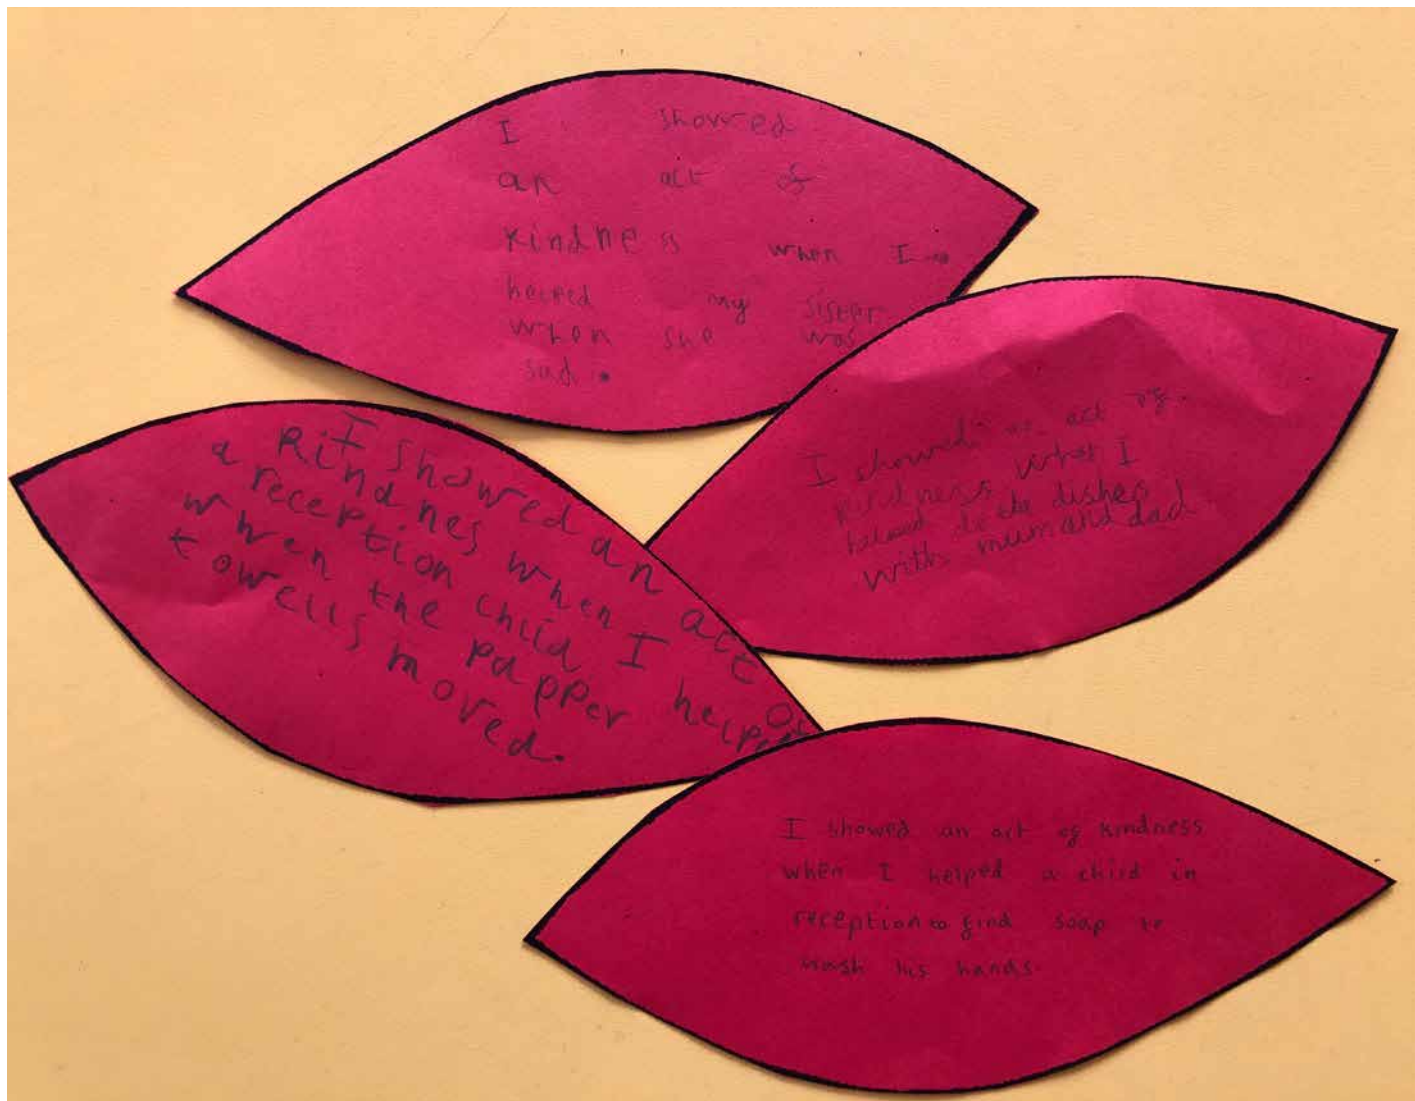 I showed
an act of
kindness when I
helped my sister
when she was
sad.
I showed an act of
kindness when I
helped do the dishes
with mum and dad
I showed an act of
kindnes when I helped
a reception child
when the papper
towells moved.
I showed an act of kindness
when I helped a child in
reception to find soap to
wash his hands